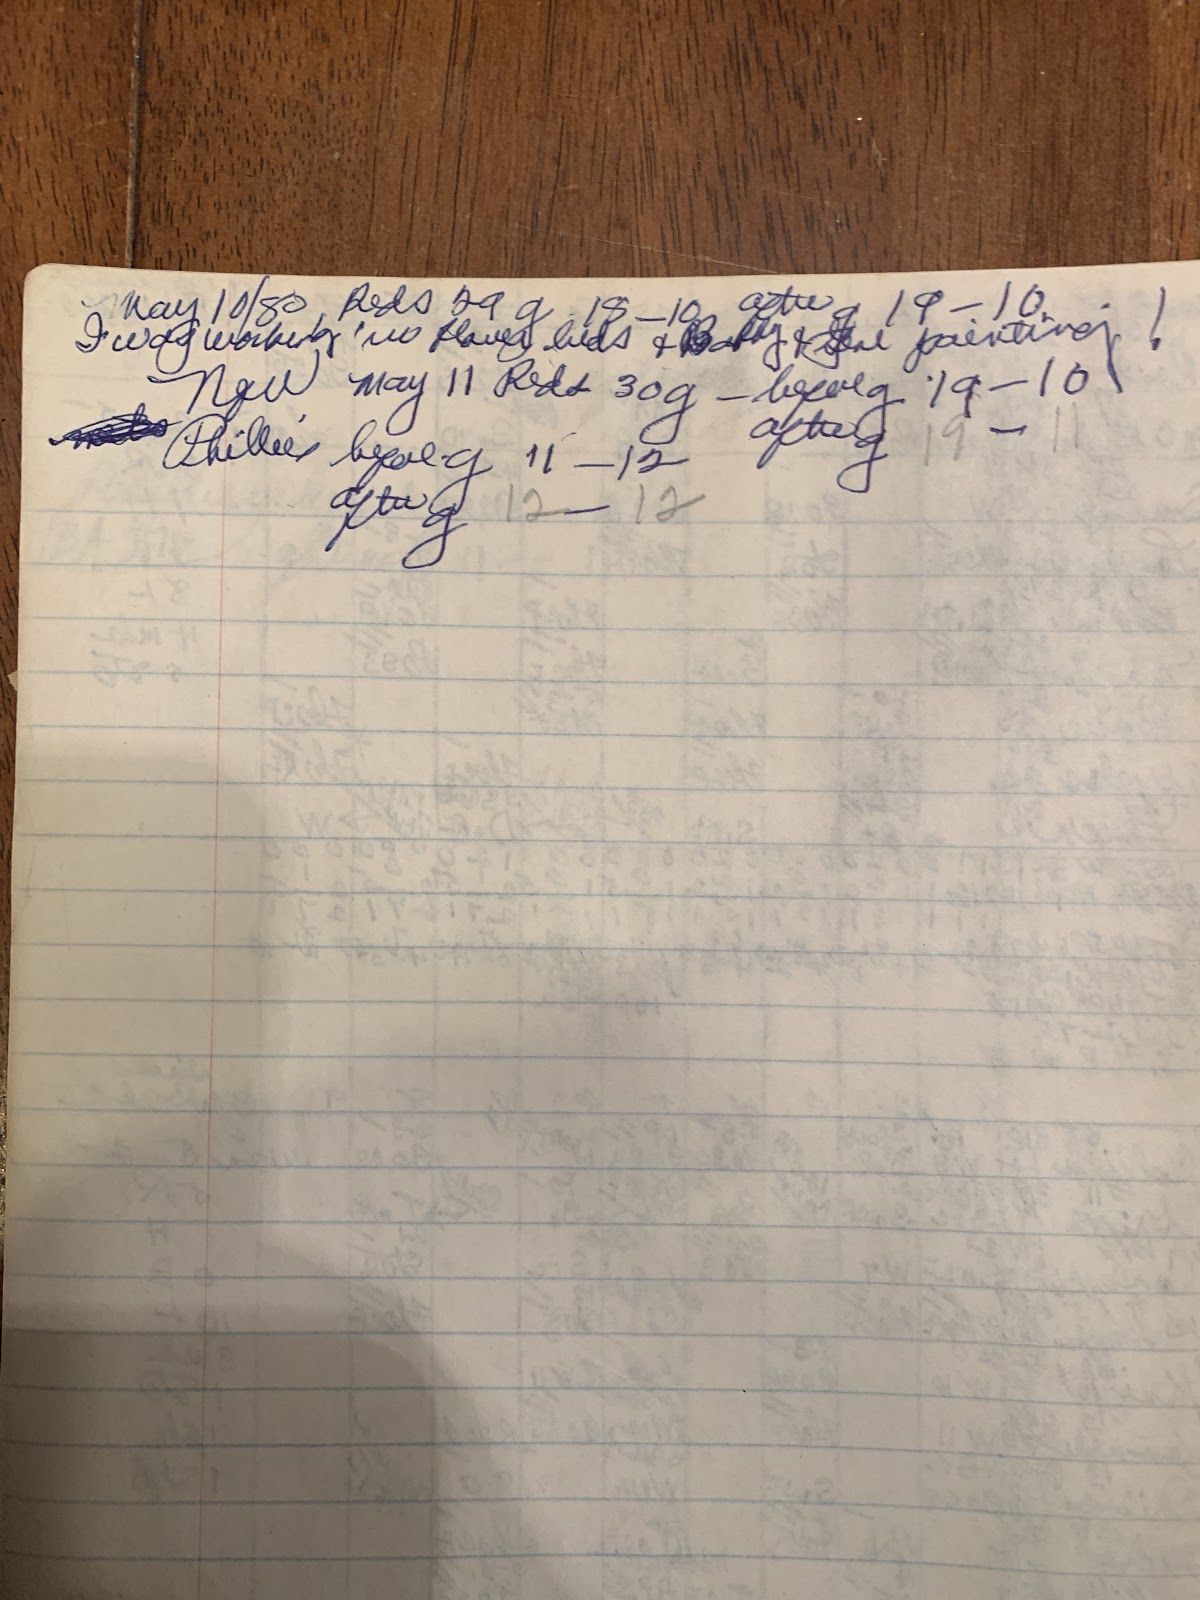 May 10/80 Reds 29 g 18-10 after g 19-10
I was working in flower beds & painting!
Now May 11 Reds 30g - before g 19-10
after g 19 - 11
Phillies before g 11-12
after g 12-12